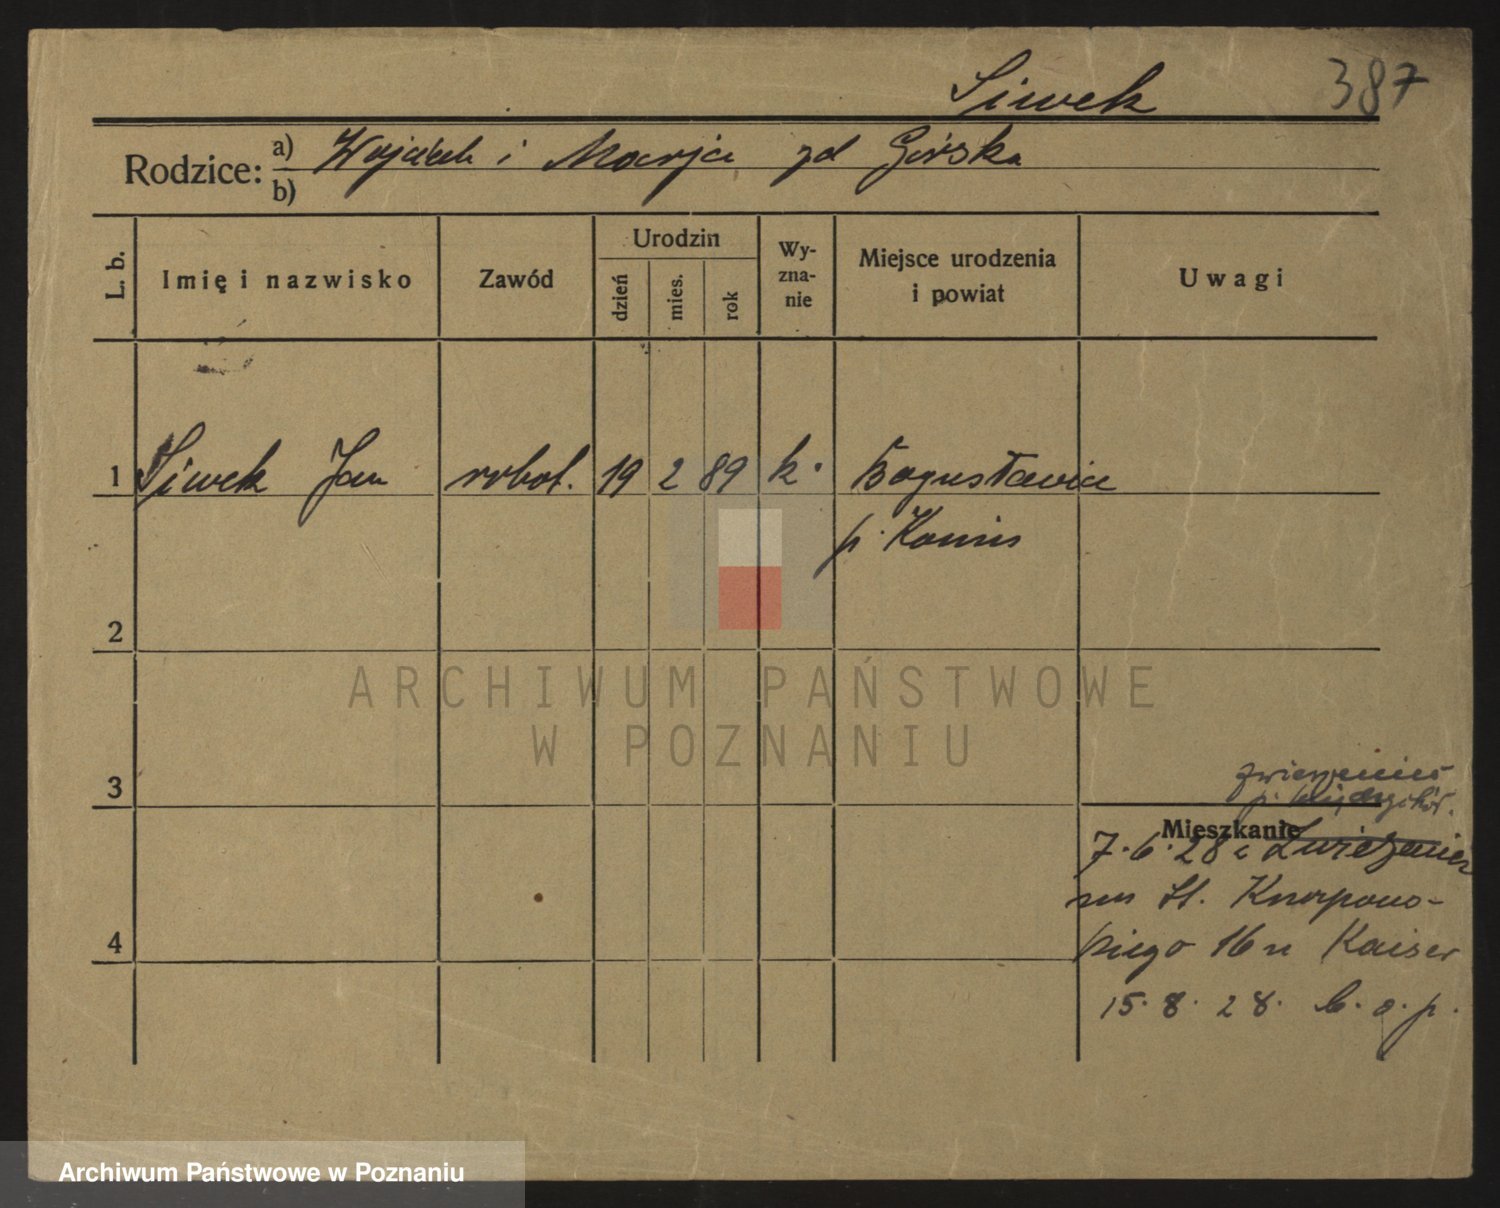 Siwek 387
Rodzice: a) Wojciech i Marja zd Górska
b)
L. b. Imię i nazwisko Zawód Urodzin dzień mies. rok Wy-zna-nie Miejsce urodzenia i powiat Uwagi
1 Siwek Jan robot. 19 2 89 k. Bogusławice
p. Konin
2
3
p. Międzychód.
Mieszkanie
7.6.28 z
St.
16 u Kaiser
4
15.8.28. b.o.p.
ARCHIWUM PAŃSTWOWE
W POZNANIU
Archiwum Państwowe w Poznaniu